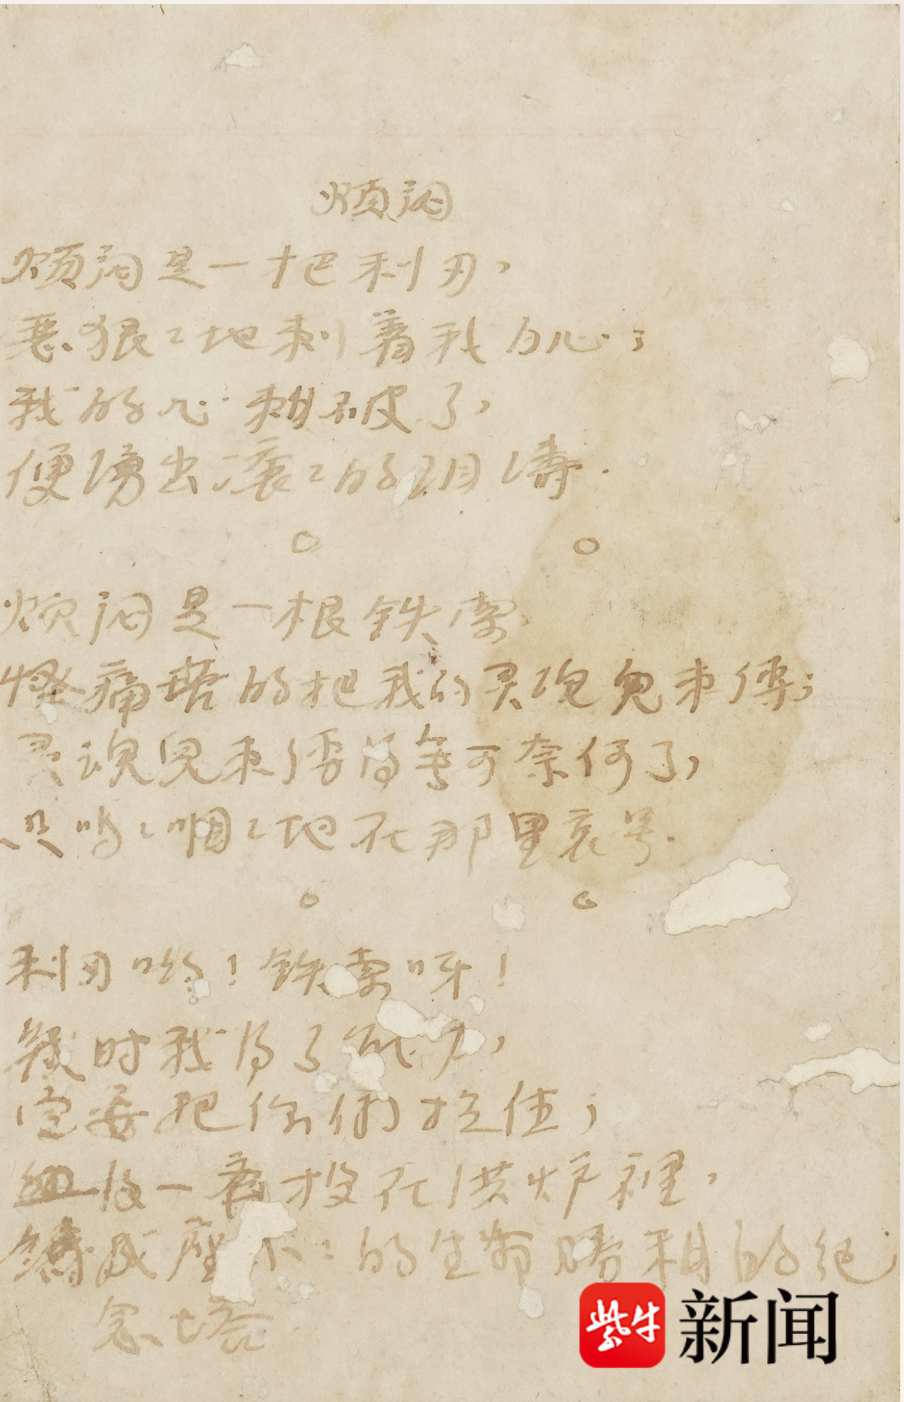 烦闷
烦闷是一把利刃，
恶狠々地刺着我的心；
我的心刺破了，
便涌出滚々的泪涛．
烦闷是一根铁索，
痛苦的把我的灵魂儿束缚；
灵魂儿束缚得无可奈何了，
只呜々咽々地在那里哀号．
利刃哟！铁索呀！
几时我得了能力，
定要把你们拴住；
一齐投在洪炉裡，
铸成座的生命勝利的纪
念塔
紫牛新闻